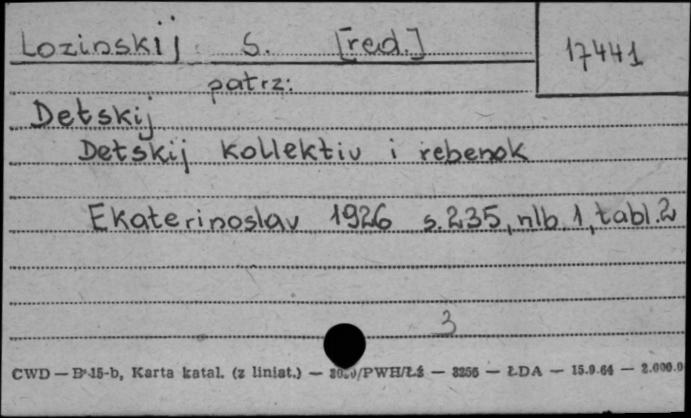 Lozinskij S. [red.]
17441
patrz:
Detskij
Detskij kollektiv i rebenok
Ekaterinoslav 1926 s. 235, nlb. 1, tabl. 2
3
CWD — B-15-b, Karta katal. (z liniat.) — /PWH/ŁS — 3256 — ŁDA — 15.9.64 — 2.000.0